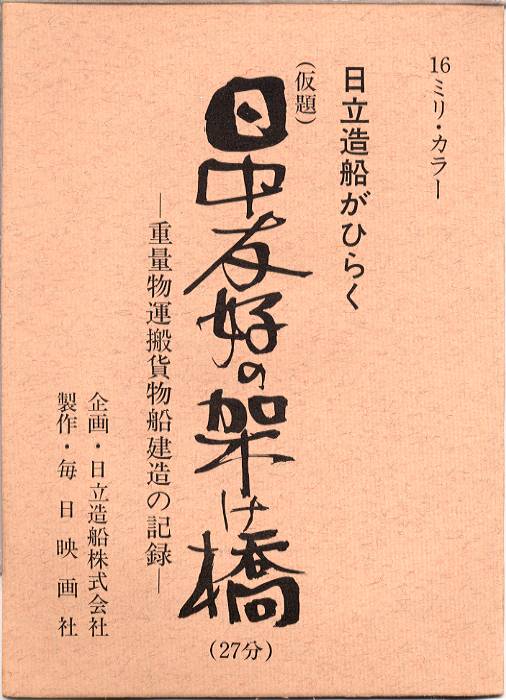 16ミリ・カラー
日立造船がひらく
(仮題)
日中友好の架け橋
(27分)
―重量物運搬貨物船建造の記録―
企画・日立造船株式会社
製作・毎日映画社